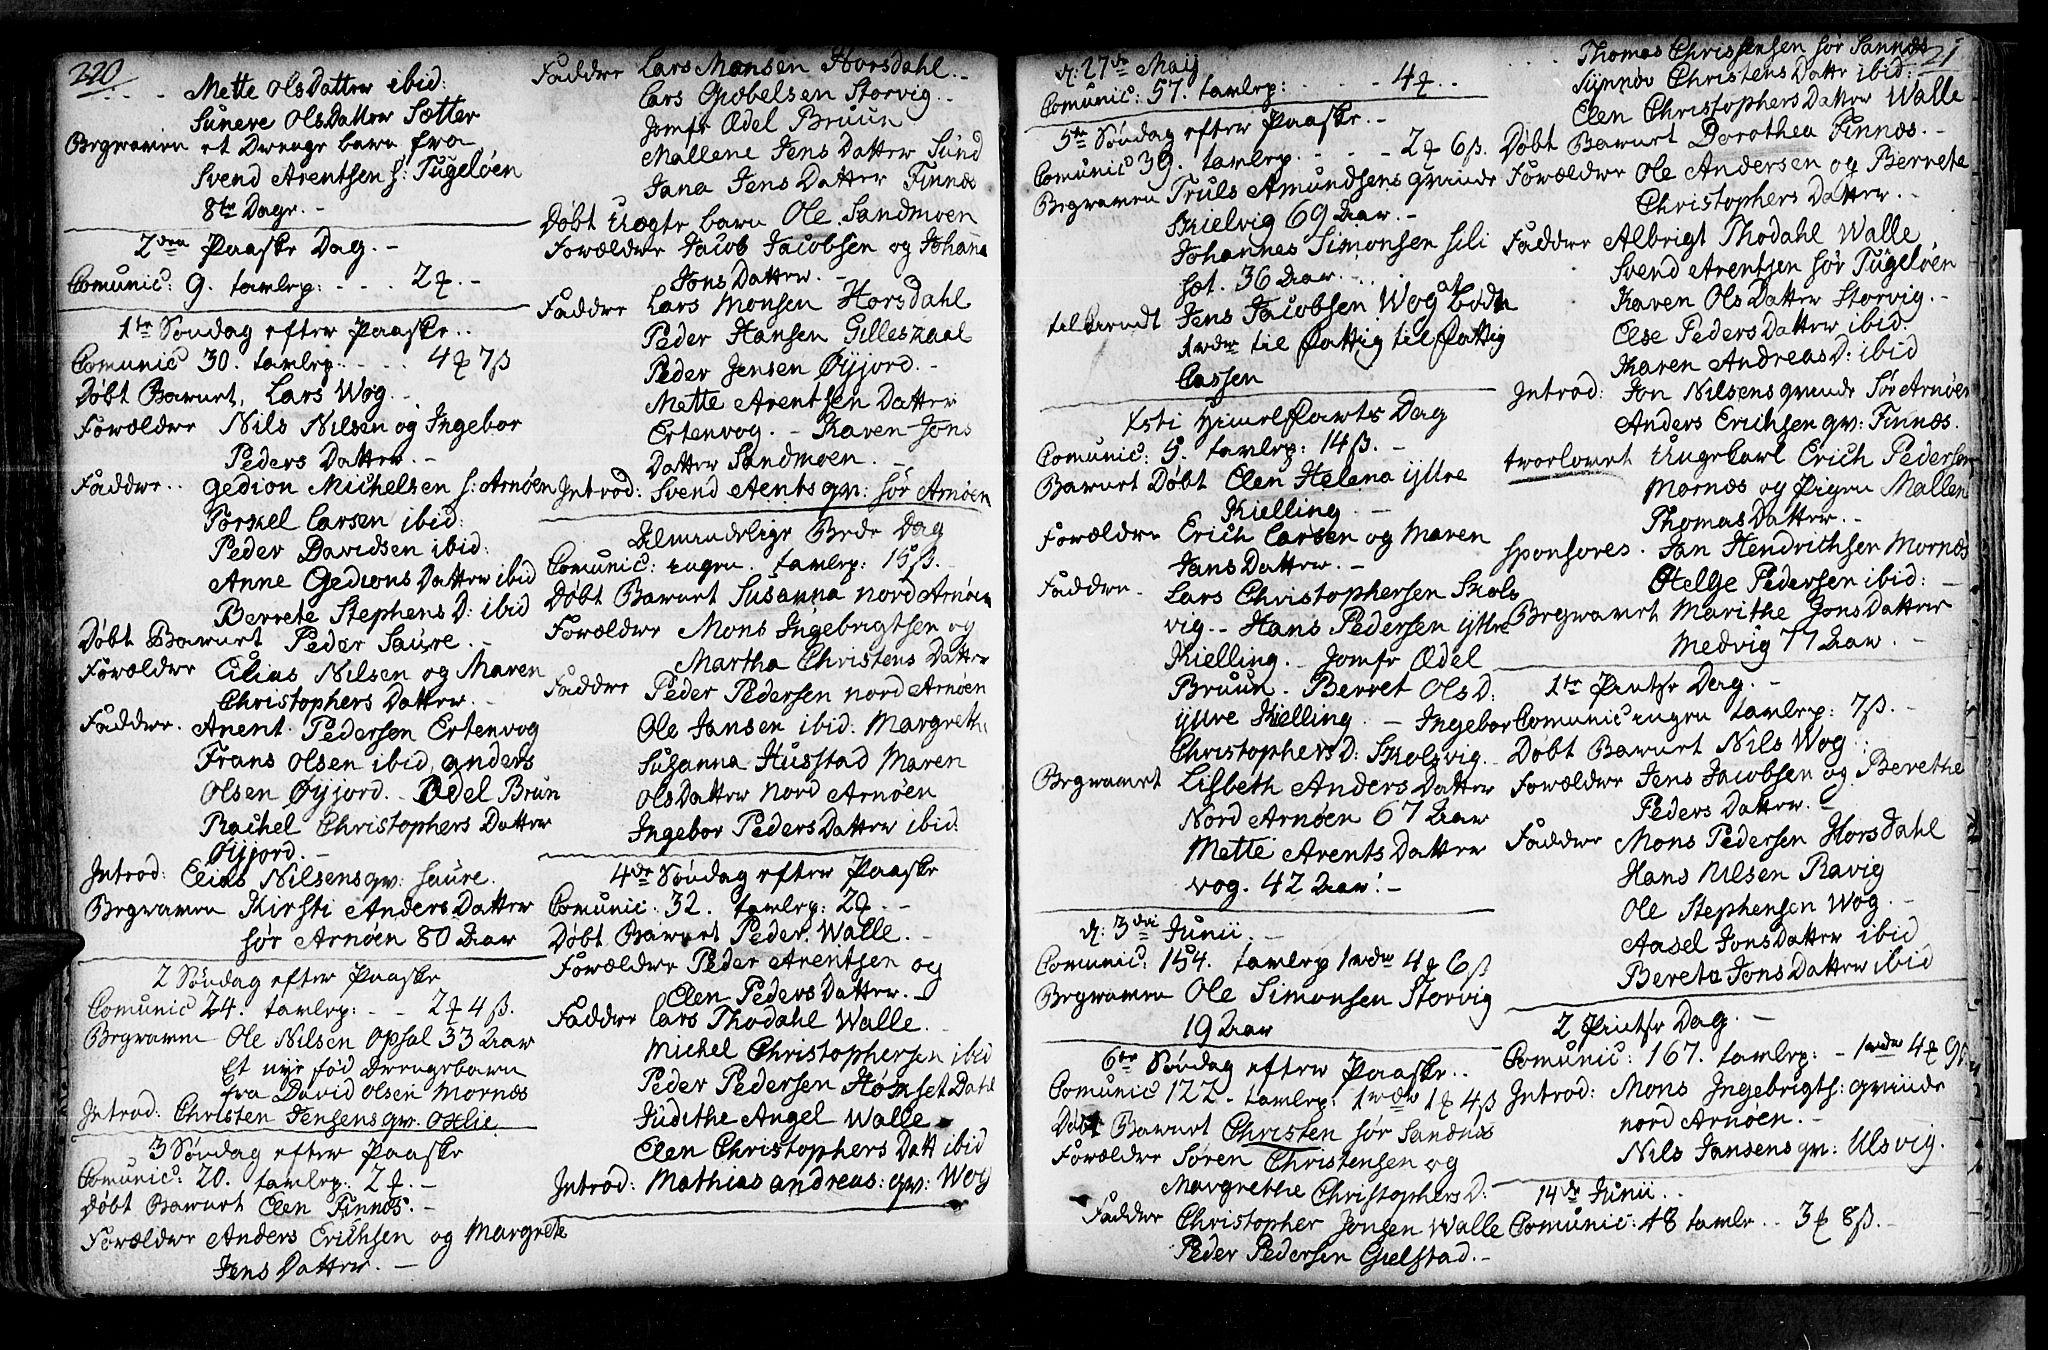 220
Mette Ols Datter ibid:
Sunere Ols Datter Sætter
Begraven et Drenge barn fra
Svend Arentsen s: Fugeløen
8te Dage. -
2den Paaske Dag. -
Comunic: 9. tavlep: - - - 2 -
1te Søndag efter Paaske..
Comunic 30. tavlep: . . . 4 7ß
Døbt Barnet, Lars Wog. -
Forældre Nils Nilsen og Ingebor
Peders Datter. -
Faddre.. Gedion Michelsen s: Arnøen
Torkel Larsen ibid:
Peder Davidsen ibid:
Anne Gedions Datter ibid
Berrete Stephens D: ibid
Døbt Barnet Peder Saure. -
Forældre Elias Nilsen og Maren
Christophers Datter. -
Faddre. Anent. Pedersen Ertenvog
Frans Olsen ibid, anders
Olsen Øyjord. - Ødel Brun
Rachel Christophers Datter
Øyjord. -
Introd: Elias Nilsens qv: Saure.
Begraven Kirsti Anders Datter
sør Arnøen 80 Aar
2 Søndag efter Paaske
Comunic 24. tavlep: - - 2 4ß.
Begraven Ole Nilsen Opsal 33 Aar
Et nye fød Drengebarn
fra David Olsen Mornæs
Introd: Christen Jensens qv. Oxlie
3 Søndag efter Paaske
Comunic: 20. tavlep: 2 . -
Døbt Barnet Elen Finnæs. -
Forældre Anders Erichsen og Margrete
Jens Datter. -
Faddre Lars Monsen Horsdahl. -
Lars Gabelsen Storvig. -
Jomfr Ædel Bruun
Mallene Jens Datter Sund
Jana Jens Datter Finnæs
Døbt Uægte barn Ole Sandmoen
Forældre Jacob Jacobsen og Johana
Jons Datter. -
Faddre Lars Monsen Horsdahl
Peder Hansen Gilleskaal
Peder Jensen Øyjord. -
Mette Arentsen Datter
Ertenvog. - Karen Jons
Datter Sandmoen. -
Introd: Svend Aents qv: sør Arnøen
Almindelige Bede Dag
Comunic: ingen. tavlep: 15ß. -
Døbt Barnet Susanna nord Arnøen
Forældre Mons Ingebrigtsen og
Martha Christens Datter
Faddre Peder Pedersen nord Arnøen
Ole Jansen ibid. Margreth.
Susanna Husstad Maren
Ols Datter nord Arnøen
Ingebor Peders Datter ibid:
4de Søndag efter Paaske
Comunic: 32. tavlep: 2 . -
Døbt Barnet Peder. Walle. -
Forældre Peder Arentsen og
Elen Peders Datter. -
Faddre Lars Thodahl Walle. -
Michel Christophersen ibid
Peder Pedersen Hømset Dahl
Judithe Angel Walle.
Elen Christophers Datt ibid
Introd: Mathias andreas: qv: Wog
d: 27de Maij
Comunic: 57. tavlep: - - - - 4 . .
5te Søndag efter Paaske. -
Comunic 39. tavlep. - - - - 2 6ß.
Begraven Truls Amundsens qvinde
Skielvig 69 Aar. -
Johannes Simonsen seli
sæt. 36 Aar. -
tilkiendt Jens Jacobsen Wog at bøde
1rdr til fattig til fattig
Cassen
Xsti Himelfarts Dag
Comunic: 5. tavlep: 14ß. -
Barnet Døbt Elen Helena ijttre
Kielling. -
Forældre Erich Larsen og Maren
Jans Datter. -
Faddre. Lars Christophersen Skols
vig. - Hans Pedersen ijttre
Kielling. - Jomfr Ædel
Bruun. Berret Ols D:
ijttre Kielling. - Ingebor
Christophers D: Skolsvig. -
Begravet Lisbeth Anders Datter
Nord Arnøen 67 Aar
Mette Arents Datter
Vog. 42 Aar. -
d: 3dei Junii. -
Comunic: 154. tavlep 1rdr 4 6ß
Begraven Ole Simonsen Storvig
19 Aar
6te Søndag efter Paaske..
Comunic 122. tavlep: 1rdr 1 4ß
Døbt Barnet Christen sør Sandnæs
Forældre Søren Christensen og
Margrethe Christophers D:
Fadder Christopher Jonsen Walle
Peder Pedersen Gielstad. -
21
Thomas Christensen sør Sannæs
Synnøv Christens Datter ibid:
Elen Christophers Datter Walle
Døbt Barnet Dorothea Finnæs. -
Forældre Ole Andersen og Berrete
Christophers Datter. -
Faddre Albrigt Thodahl Walle
Svend Arentsen sør Fugeløen
Karen Ols Datter Storvig. -
Else Peders Datter ibid:
Karen Andreas D: ibid
Introd: Jon Nilsens qvinde Sør Arnøen
Anders Erichsen qv: Finnæs.
trolovet Ungekarl Erich Pedersen
Mornæs og Pigen Mallen
Thomas Datter. -
Sponsores. Jan Hendrichsen Mornæs
Helge Pedersen ibid: -
Begravet Marithe Jons Datter
Medvig 77 Aar. -
1te Pintse Dag. -
Comunic ingen tavlep: 7ß. -
Døbt Barnet Nils Wog
Forældre Jens Jacobsen og Berethe
Peders Datter. -
Faddre Mons Pedersen Horsdahl
Hans Nilsen Ravig
Ole Stephensen Wog. -
Aasel Jons Datter ibid
Bereta Jons Datter ibid
2 Pintse Dag. -
Comunic: 167. tavlep: - 1rdr 4
Introd: Mons Ingebrigts: qvinde
nord Arnøen. -
Nils Jansens qv: Ulsvig.
14de Junii. .
Comunic: 48 tavle. . 3 8ß. -